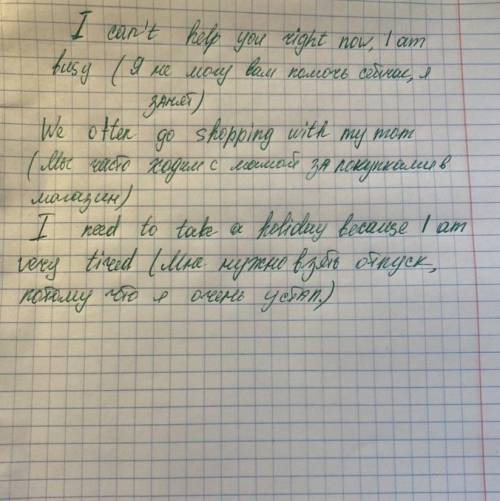 I can't help you right now, I am
busy (Я не могу вам помочь сейчас, я
занят)
We often go shopping with my mom
(Мы часто ходим с мамой за покупками в
магазин)
I need to take a holiday because I am
very tired (Мне нужно взять отпуск,
потому что я очень устал.)